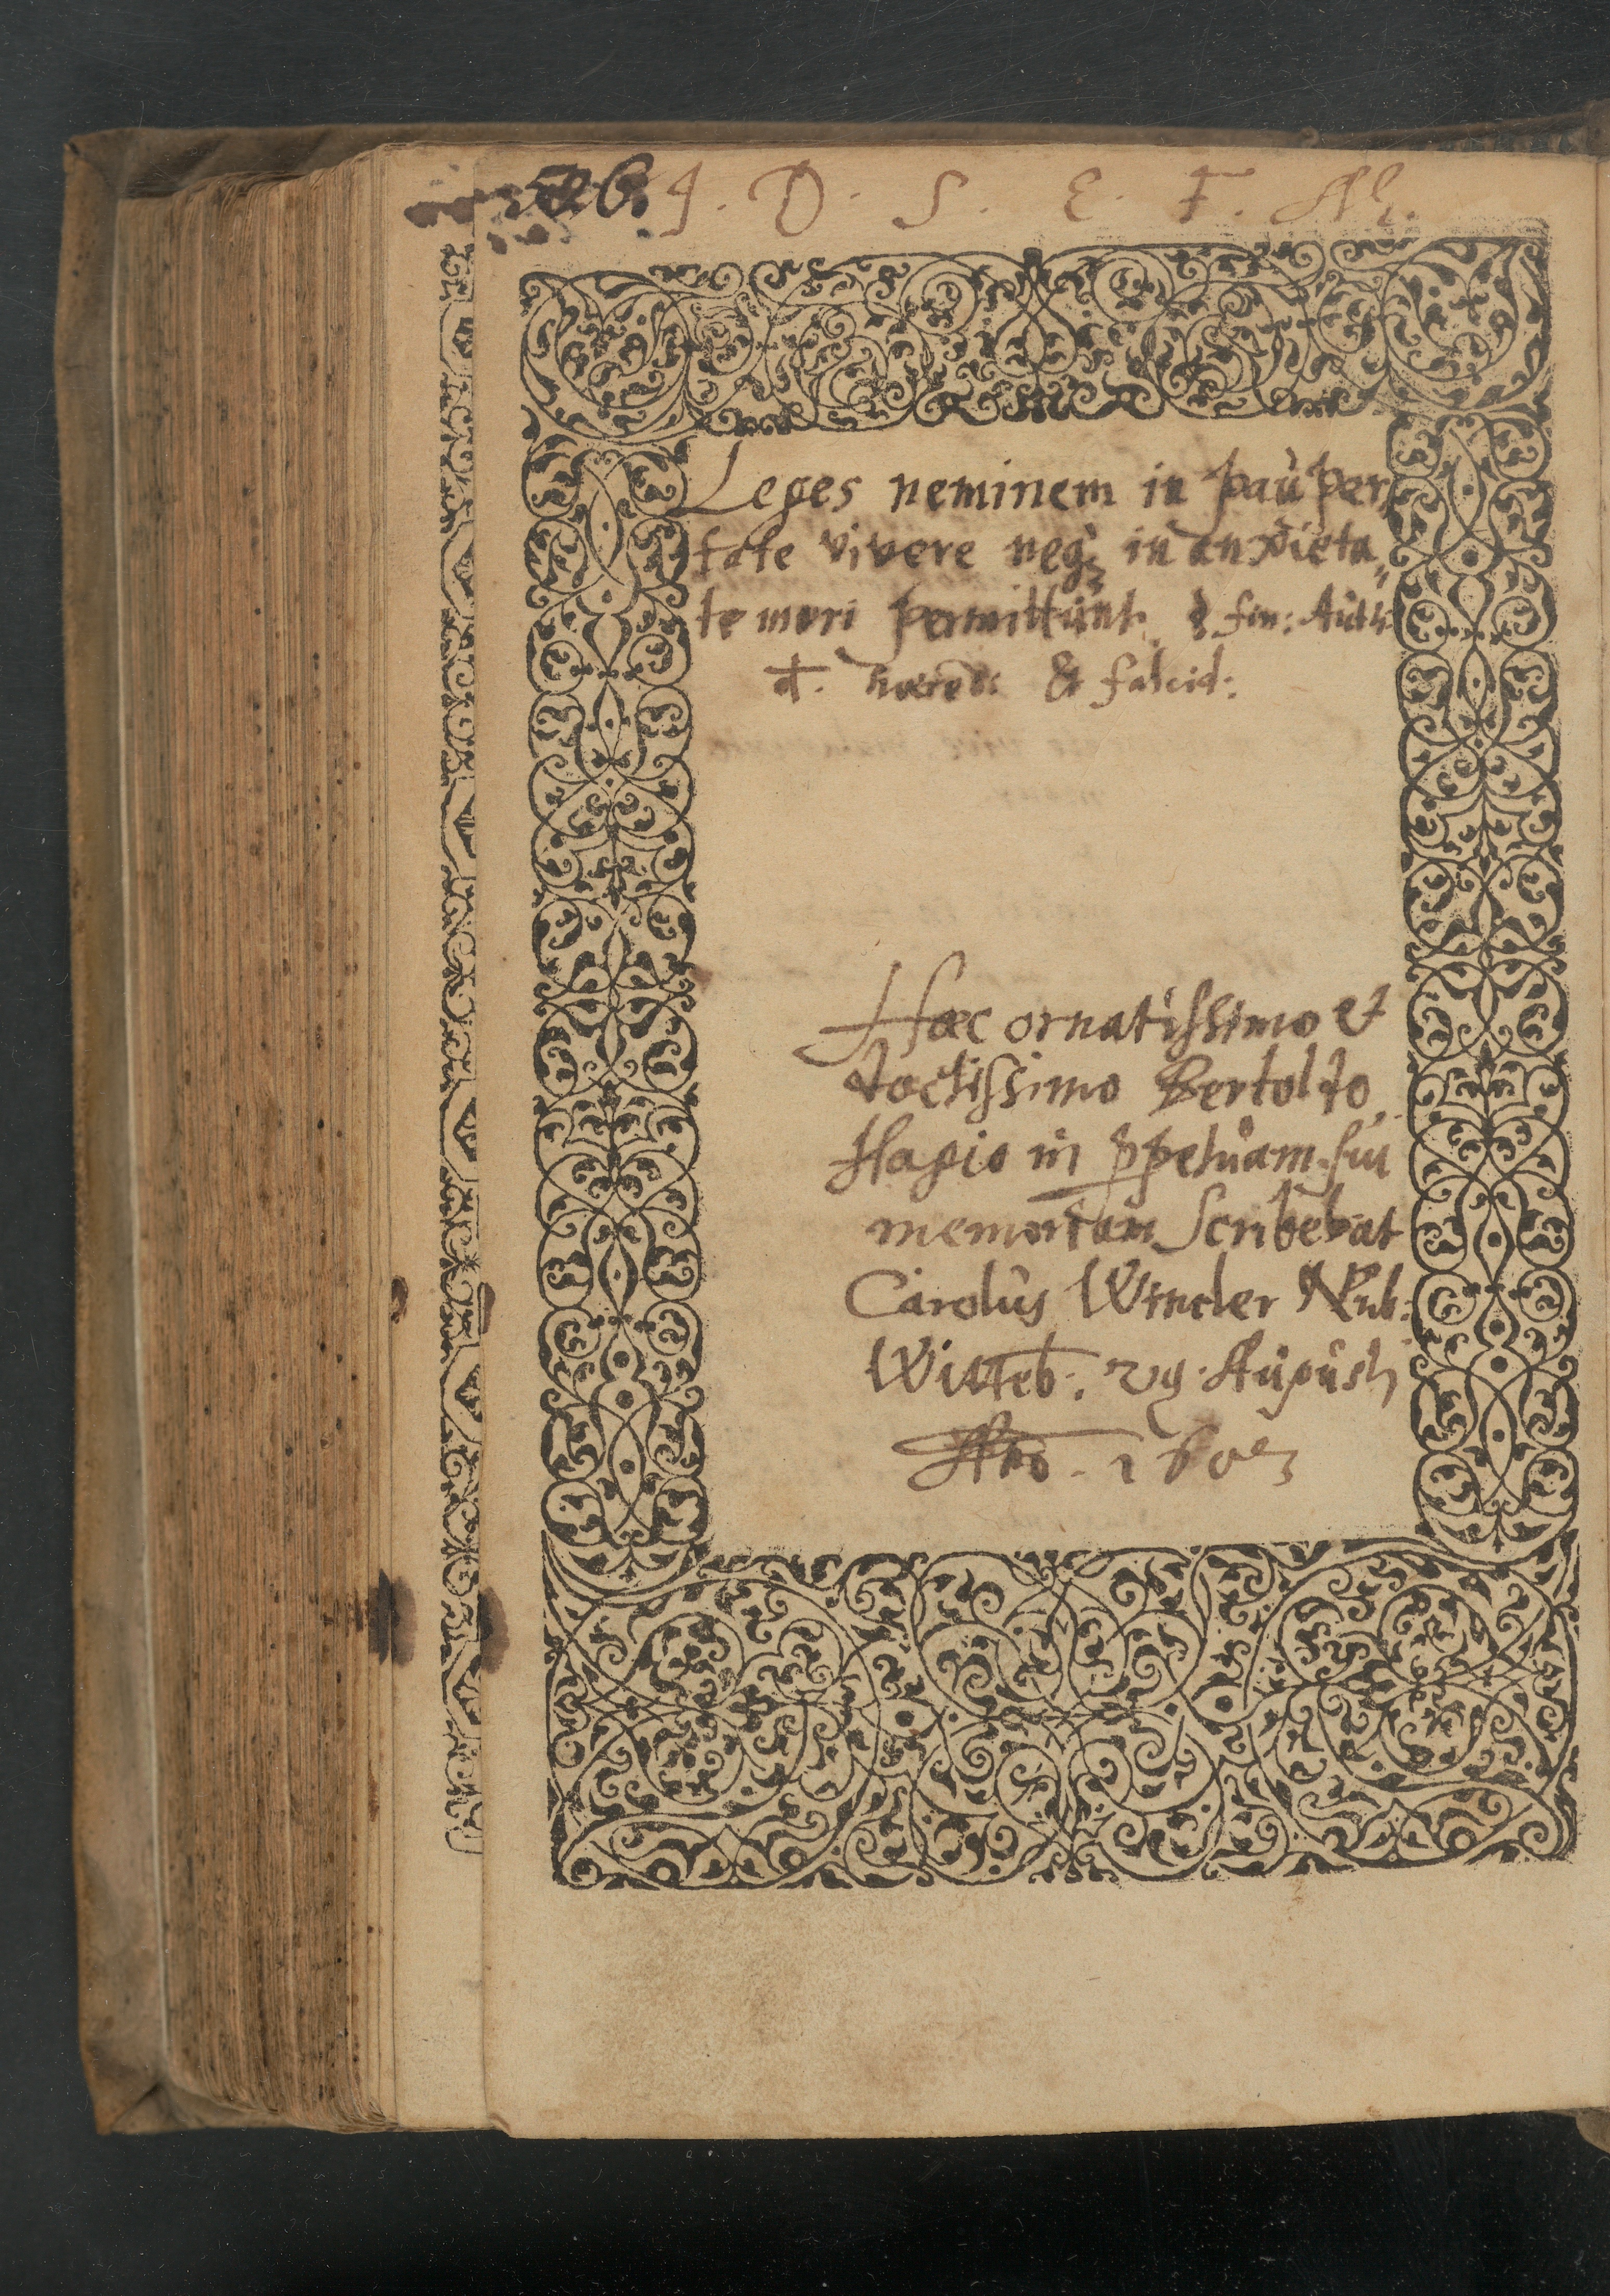 J. D. S. E. F. M.
Leges neminem in pauper
tate vivere neq₃ in anxieta„
te mori permittunt. § fin: Auth
d. haered: & falcid:
Haec ornatissimo et
doctissimo Bertoldo
Hagio in ꝑpetuam sui
memoriam scribebat
Carolus Wincler
Witteb: 29 Augusti
Ao. 1603